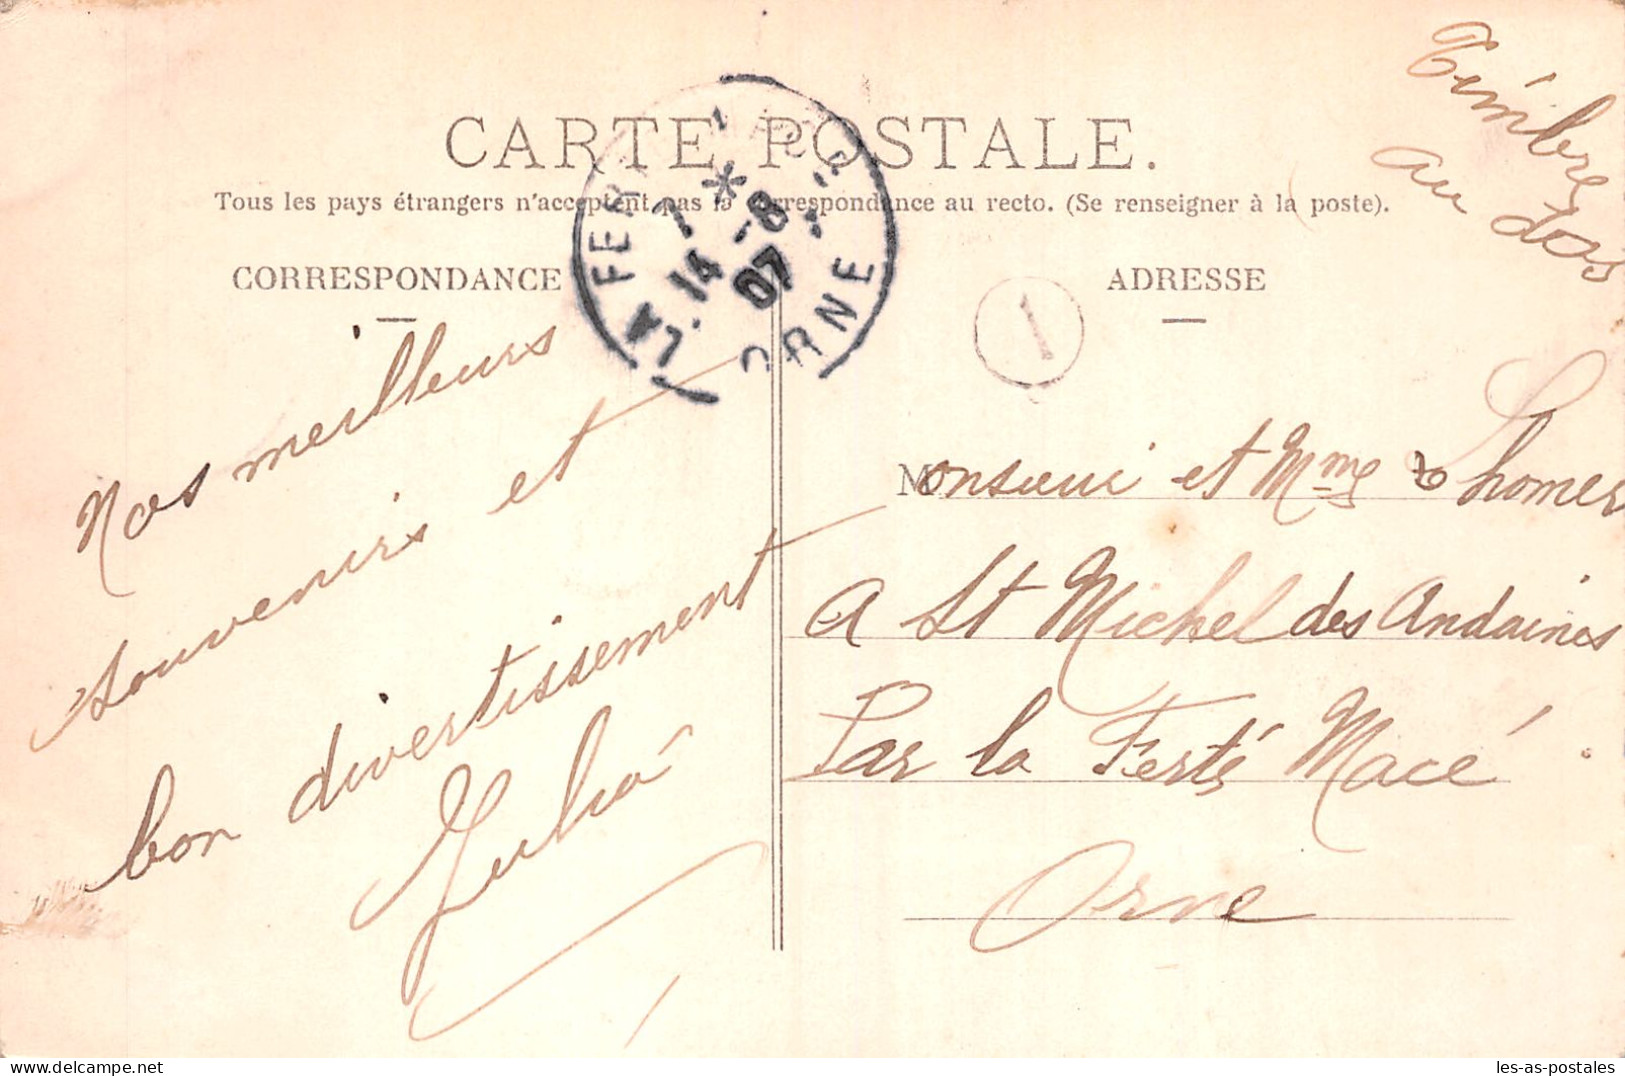 Timbre
au dos
CARTE POSTALE.
Tous les pays étrangers n'acceptent pas la correspondance au recto. (Se renseigner à la poste).
CORRESPONDANCE
ADRESSE
LA FER
7 *
14 -8
07
ORNE
1
Nos meilleurs
souvenirs et
bon divertissement
Monsieur et Mme Lhomer
A St Michel des Andaines
Par la Ferté Macé
Orne
Delcampe.net
les-as-postales